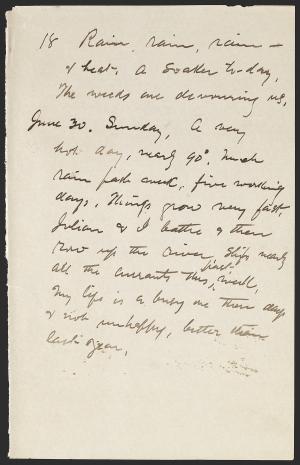 18 Rain, rain, rain –
& heat. A soaker to-day,
The weeds are devouring us,
June 30. Sunday, A very
hot day, nearly 90°. Much
rain past week, five working
days, Things grow very fast,
Julian & I bathe & then
row up the river, Ships nearly
all the currants this week,
first
My life is a busy one these days
& not unhappy, better than
last year,